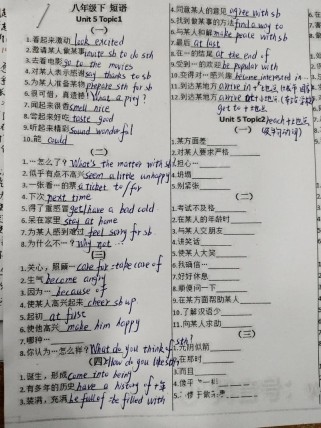 八年级下 短语
Unit 5 Topic1
(一)
1.看起来激动 look excited
2.邀请某人做某事 invite sb to do sth
3.去看电影 go to the movies
4.对某人表示感谢 say thanks to sb
5.为某人准备某物 prepare sth for sb
6.很可惜,真遗憾! What a pity!
7.闻起来很香 smell nice
8.尝起来好吃 taste good
9.听起来精彩 sound wonderful
10.能 could
(二)
1.…怎么了? What's the matter with sb
2.似乎有点不高兴 seem a little unhappy
3.一张看…的票 a ticket to/for
4.下次 next time
5.得了重感冒 get/have a bad cold
6.呆在家里 stay at home
7.为某人感到难过 feel sorry for sb
8.为什么不…? Why not …
(三)
1.关心,照顾… care for = take care of
2.生气 become angry
3.因为… because of
4.使某人高兴起来 cheer sb up
5.起初 at first
6.使他高兴 make him happy
7.哪种…
8.你认为…怎么样? What do you think of sth?
How do you like sth
(四)
1.诞生,形成 come into being
2.有多年的历史 have a history of +年
3.装满,充满 be full of = be filled with
4.同意某人的意见 agree with sb
5.找到做某事的方法 find a way to
6.与某人和解 make peace with sb
7.最后 at last
8.在…的结尾 at the end of
9.受到…的欢迎 be popular with
10.变得对…感兴趣 become interested in
11.到达某地方 arrive in +大地点
12.到达某地方 arrive at +小地点
get to + 地点
Unit 5 Topic2 reach+地点
(一)
1.某方面差
2.对某人要求严格
3.担心…
4.培塌
5.别紧张
(二)
1.考试不及格
2.在某人的年龄时
3.与某人交朋友
4.讲笑话
5.使某人大笑
6.我确信…
7.好好休息
8.顺便问一下
9.在某方面帮助某人
10.了解汉语少
11.向某人求助
(三)
1.光阴似箭
2.在那时
3.而且